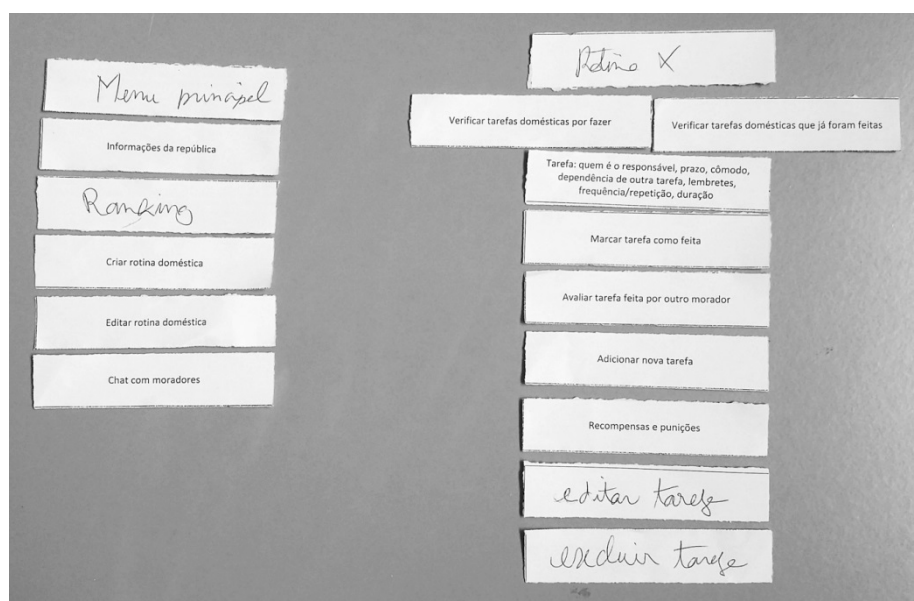 Menu principal
Informações da república
Ranking
Criar rotina doméstica
Editar rotina doméstica
Chat com moradores
Rotina X
Verificar tarefas domésticas por fazer
Verificar tarefas domésticas que já foram feitas
Tarefa: quem é o responsável, prazo, cômodo,
dependência de outra tarefa, lembretes,
frequência/repetição, duração
Marcar tarefa como feita
Avaliar tarefa feita por outro morador
Adicionar nova tarefa
Recompensas e punições
editar tarefa
excluir tarefa